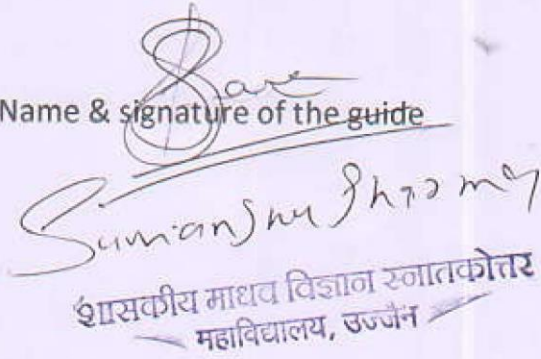 Name & signature of the guide
Sharma
शासकीय माधव विज्ञान स्नातकोत्तर
महाविद्यालय, उज्जैन